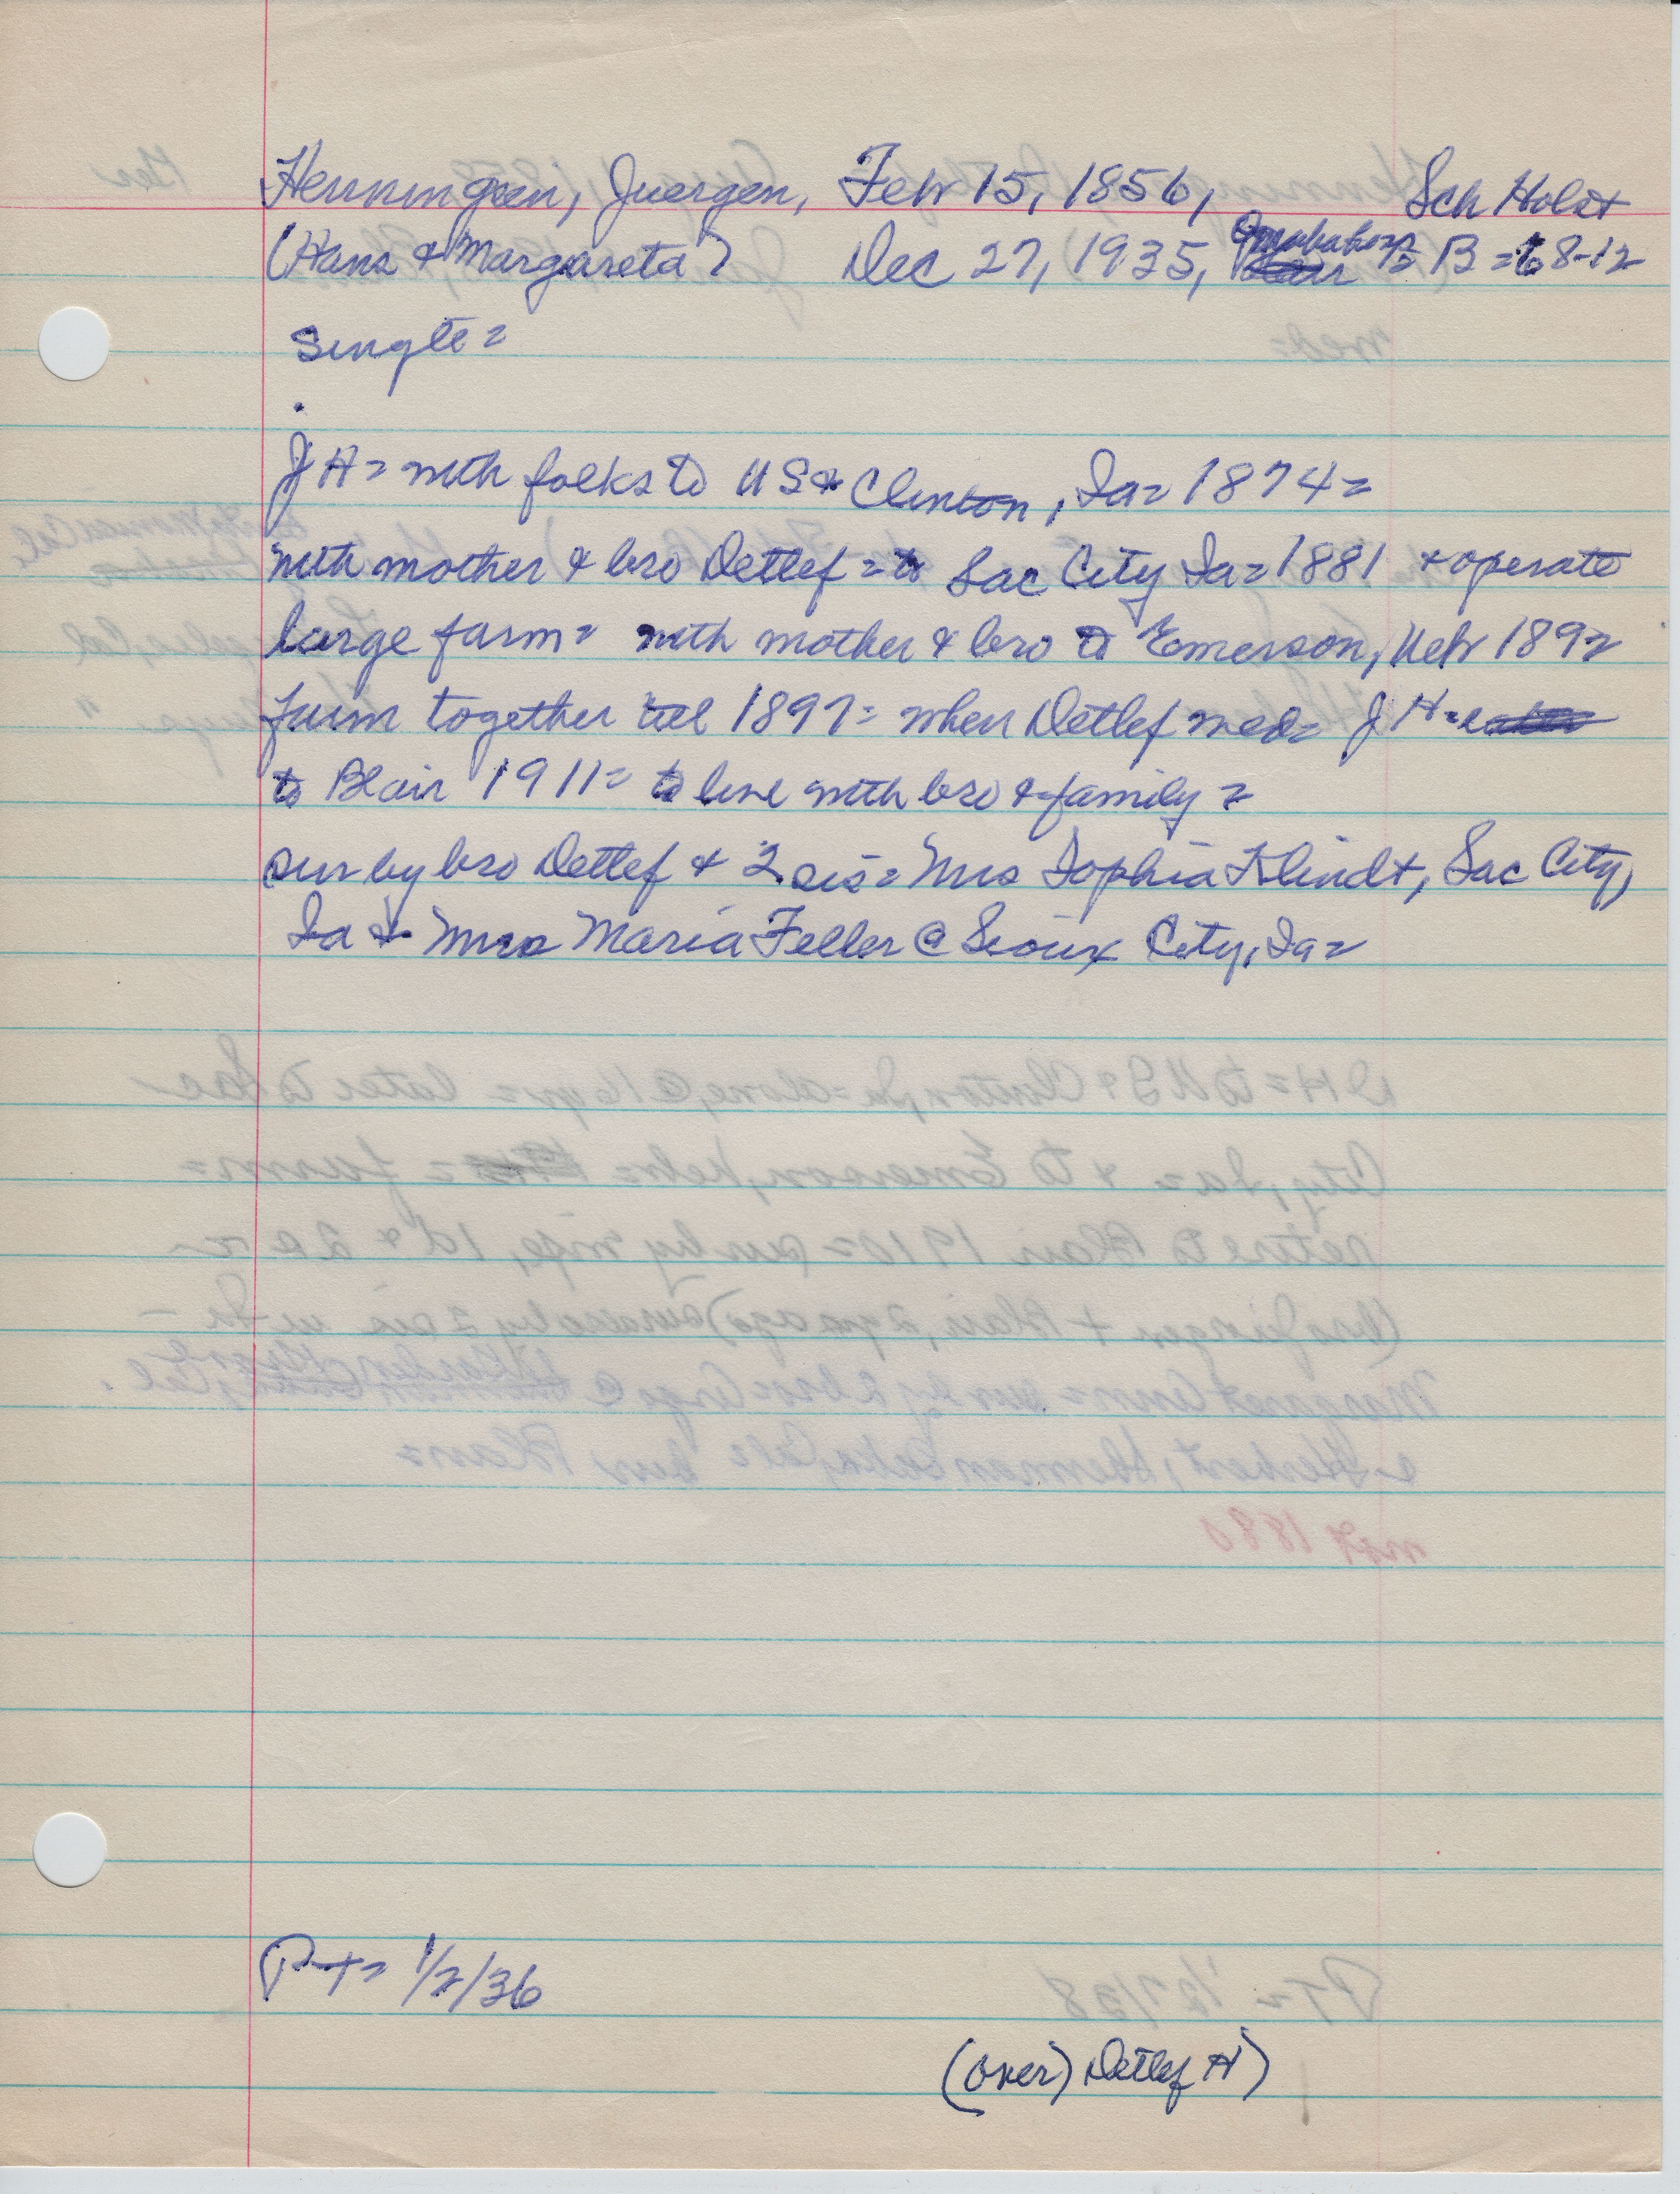 Henningsen, Juergen, Feb 15, 1856, Sch Holst
(Hans & Margareta) Dec 27, 1935, Omaha hosp= B = 68-12
single =
J H = with folks to US & Clinton, Ia = 1874 =
with mother & bro Detlef = to Sac City Ia = 1881 & operate
large farm = with mother & bro to Emerson, Neb 1892
farm together till 1897 = when Detlef med = J H =
to Blair 1911 = to live with bro & family =
sur by bro Detlef & 2 sis = Mrs Sophia Klindt, Sac City,
Ia & Mrs Maria Feller @ Sioux City, Ia =
PT = 1/2/36
(over) Detlef H)